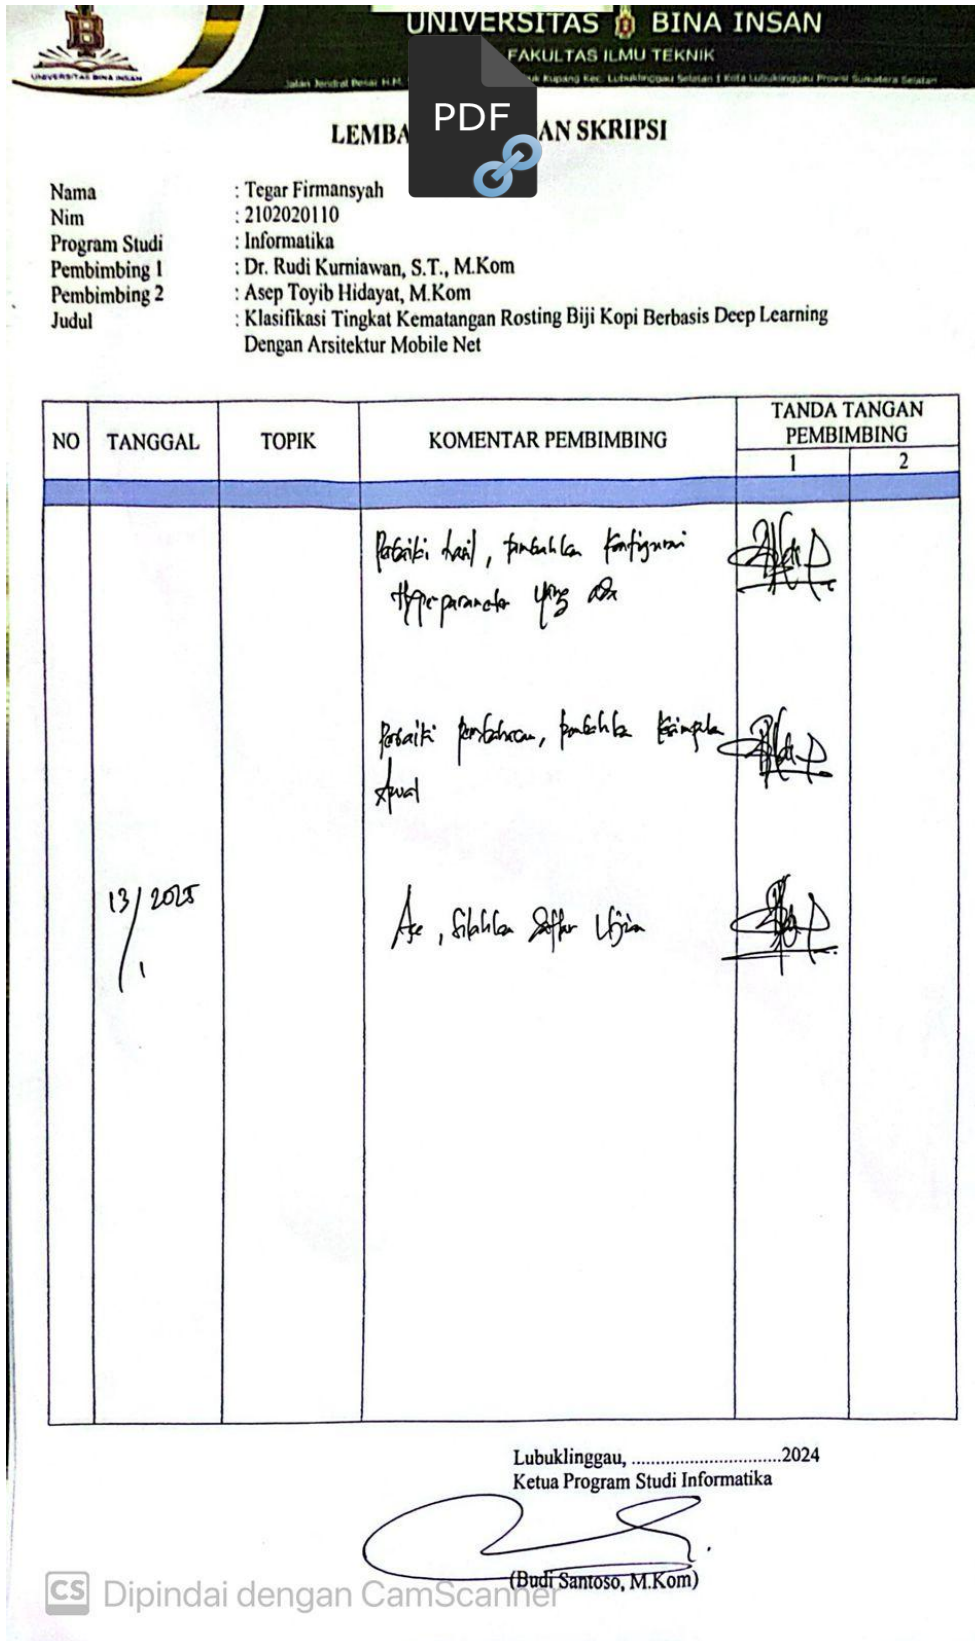 UNIVERSITAS BINA INSAN
FAKULTAS ILMU TEKNIK
UNIVERSITAS BINA INSAN
Jalan Jendral Besar H.M. Kupang Kec. Lubuklinggau Selatan 1 Kota Lubuklinggau Provinsi Sumatera Selatan
PDF
LEMBA AN SKRIPSI
Nama : Tegar Firmansyah
Nim : 2102020110
Program Studi : Informatika
Pembimbing 1 : Dr. Rudi Kurniawan, S.T., M.Kom
Pembimbing 2 : Asep Toyib Hidayat, M.Kom
Judul : Klasifikasi Tingkat Kematangan Rosting Biji Kopi Berbasis Deep Learning
Dengan Arsitektur Mobile Net
NO TANGGAL TOPIK KOMENTAR PEMBIMBING TANDA TANGAN PEMBIMBING
1 2
Perbaiki hasil, tambahkan konfigurasi
Hyperparameter yang ada
Perbaiki pembahasan, tambahkan kesimpulan
Awal
13/1 2025 Acc, silahkan daftar Ujian
Lubuklinggau, ................................2024
Ketua Program Studi Informatika
(Budi Santoso, M.Kom)
CS Dipindai dengan CamScanner